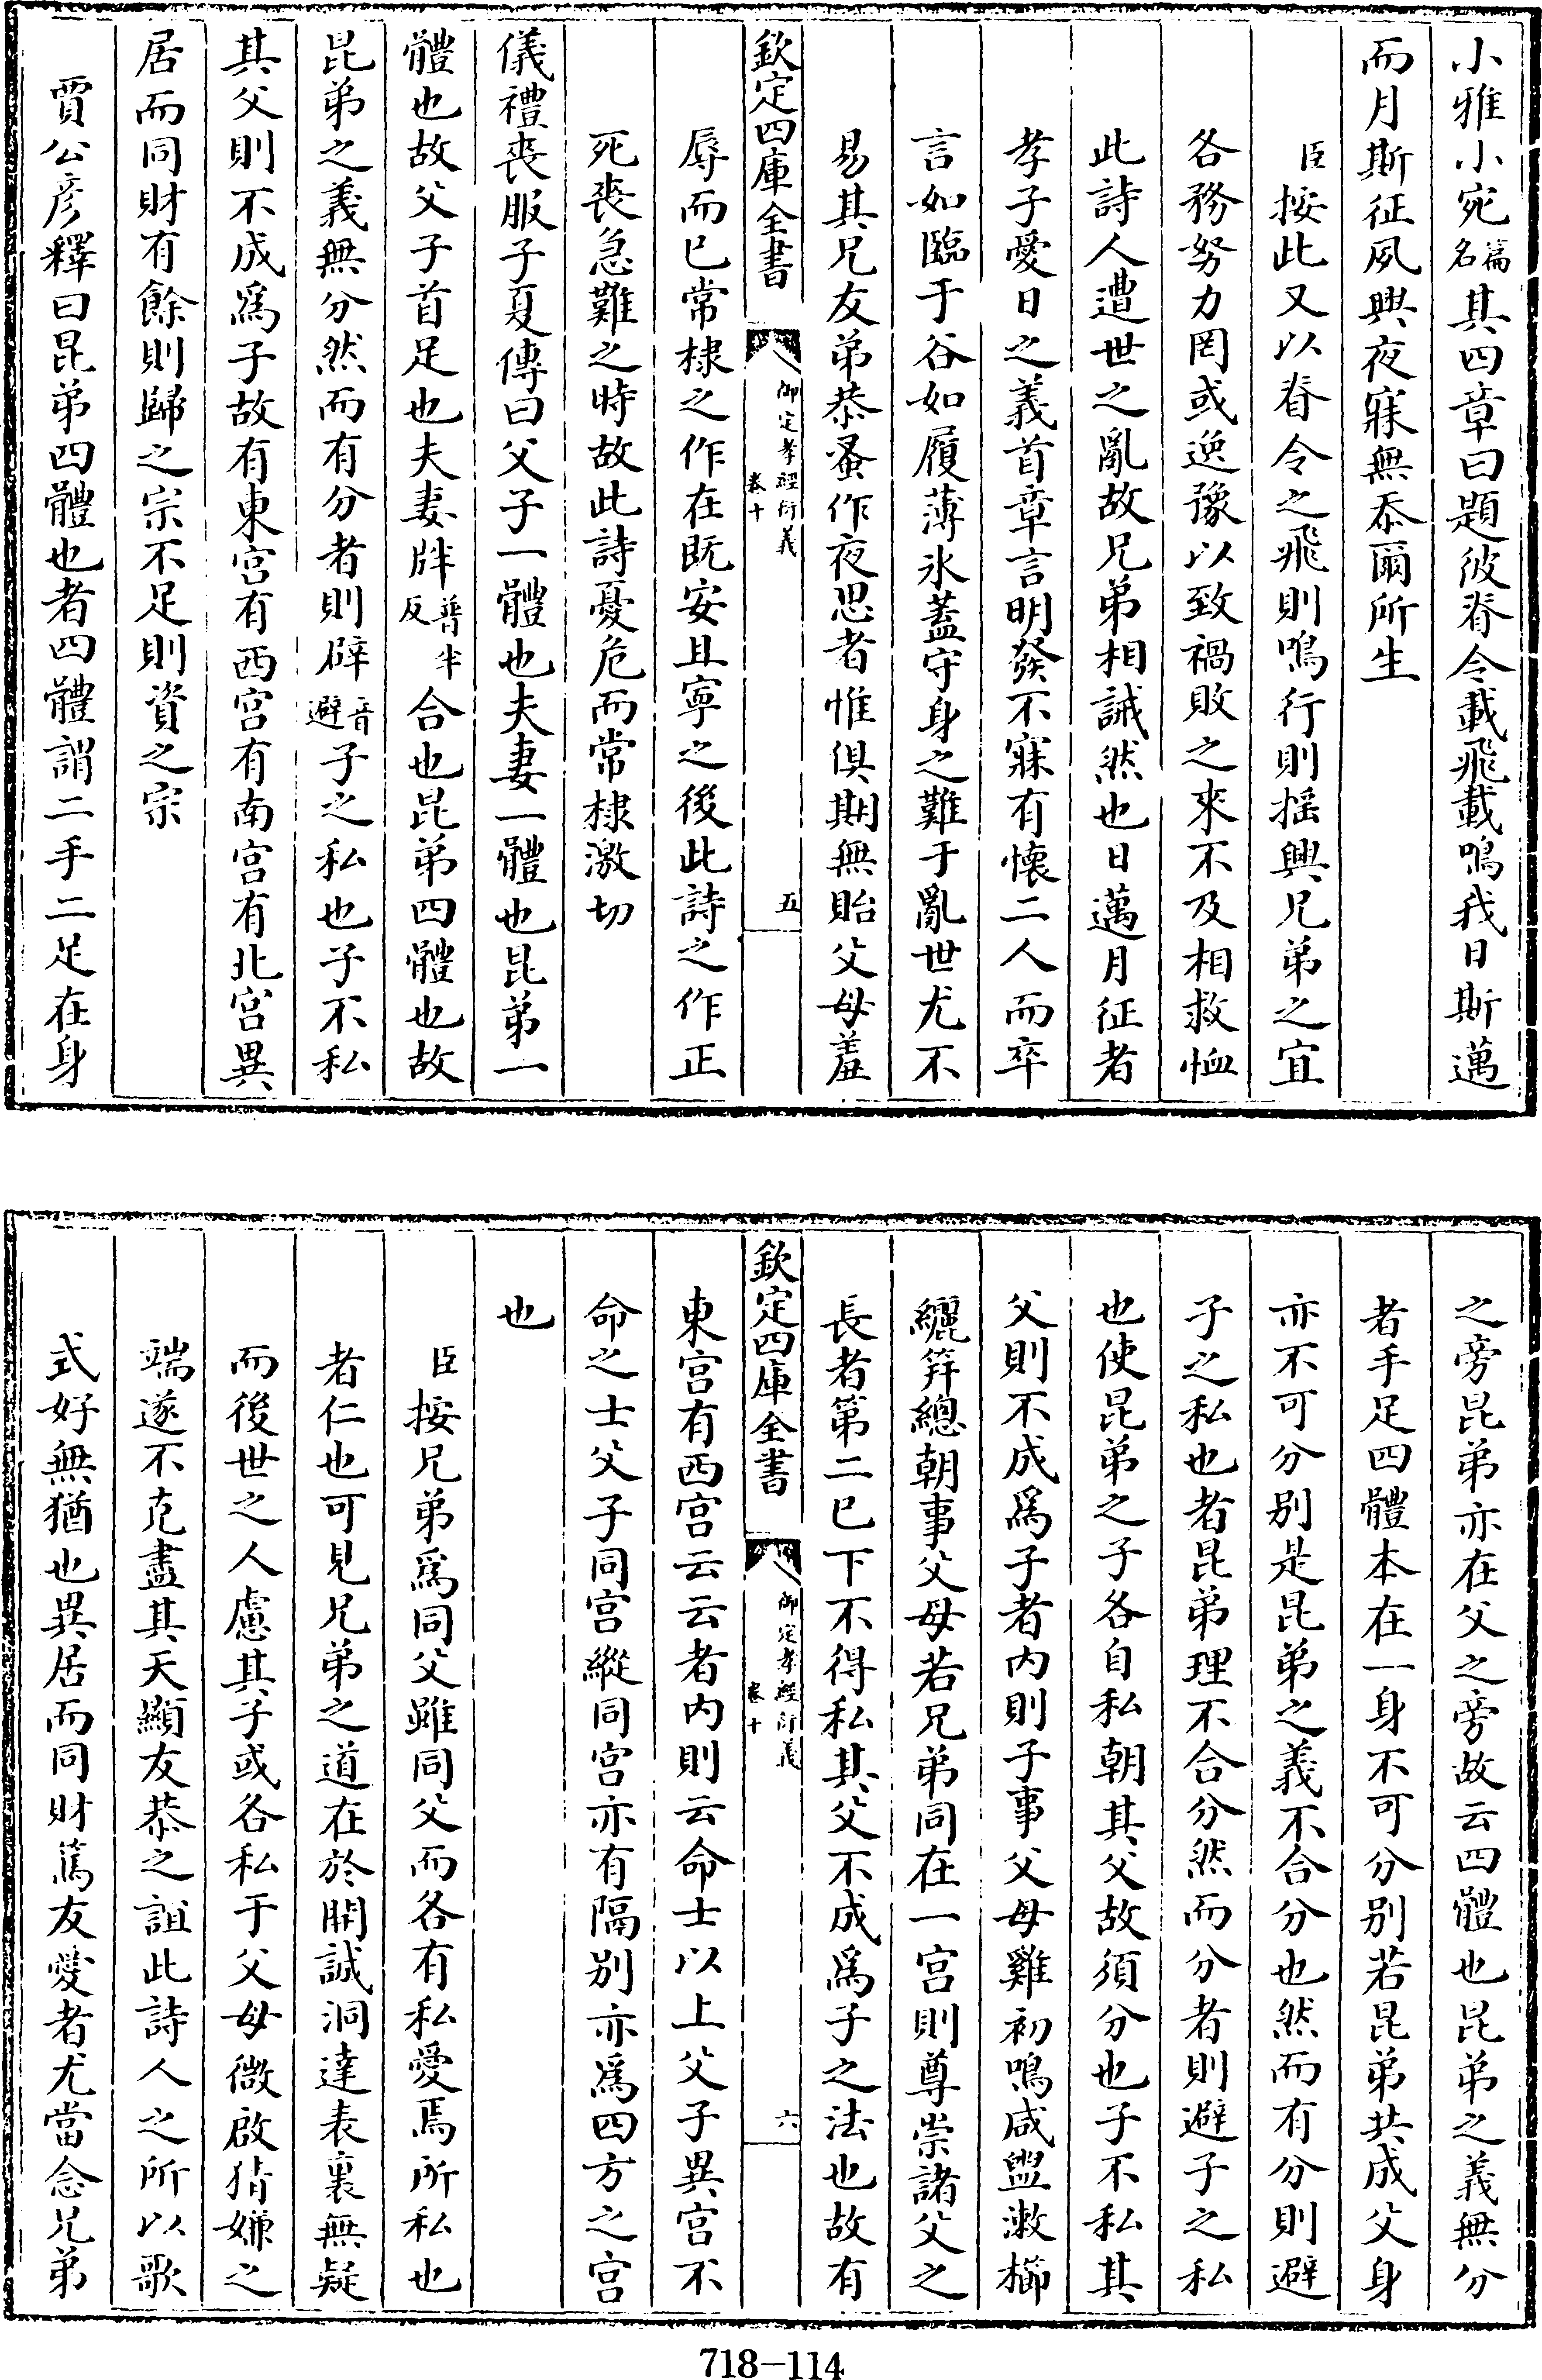 小雅小宛篇名其四章曰題彼脊令載飛載鳴我日斯邁
而月斯征夙興夜寐無忝爾所生
臣按此又以脊令之飛則鳴行則揺興兄弟之宜
各務努力罔或逸豫以致禍敗之來不及相救恤
此詩人遭世之亂故兄弟相誡然也日邁月征者
孝子愛日之義首章言明發不寐有懷二人而卒
言如臨于谷如履薄氷蓋守身之難于亂世尤不
易其兄友弟恭蚤作夜思者惟俱期無貽父母羞
欽定四庫全書
御定孝經衍義
卷十
五
辱而已常棣之作在既安且寧之後此詩之作正
死喪急難之時故此詩憂危而常棣激切
儀禮喪服子夏傳曰父子一體也夫妻一體也昆弟一
體也故父子首足也夫妻牉普半反合也昆弟四體也故
昆弟之義無分然而有分者則辟音避子之私也子不私
其父則不成爲子故有東宫有西宫有南宫有北宫異
居而同財有餘則歸之宗不足則資之宗
賈公彦釋曰昆弟四體也者四體謂二手二足在身
之旁昆弟亦在父之旁故云四體也昆弟之義無分
者手足四體本在一身不可分别若昆弟共成父身
亦不可分别是昆弟之義不合分也然而有分則避
子之私也者昆弟理不合分然而分者則避子之私
也使昆弟之子各自私朝其父故須分也子不私其
父則不成爲子者内則子事父母雞初鳴咸盥漱櫛
纚笄總朝事父母若兄弟同在一宫則尊崇諸父之
長者第二已下不得私其父不成爲子之法也故有
欽定四庫全書
御定孝經衍義
卷十
六
東宫有西宫云云者内則云命士以上父子異宫不
命之士父子同宫縱同宫亦有隔别亦爲四方之宫
也
臣按兄弟爲同父雖同父而各有私愛焉所私也
者仁也可見兄弟之道在於開誠洞達表裏無疑
而後世之人慮其子或各私于父母微啟猜嫌之
端遂不克盡其天顯友恭之誼此詩人之所以歌
式好無猶也異居而同財篤友愛者尤當念兄弟
718-114